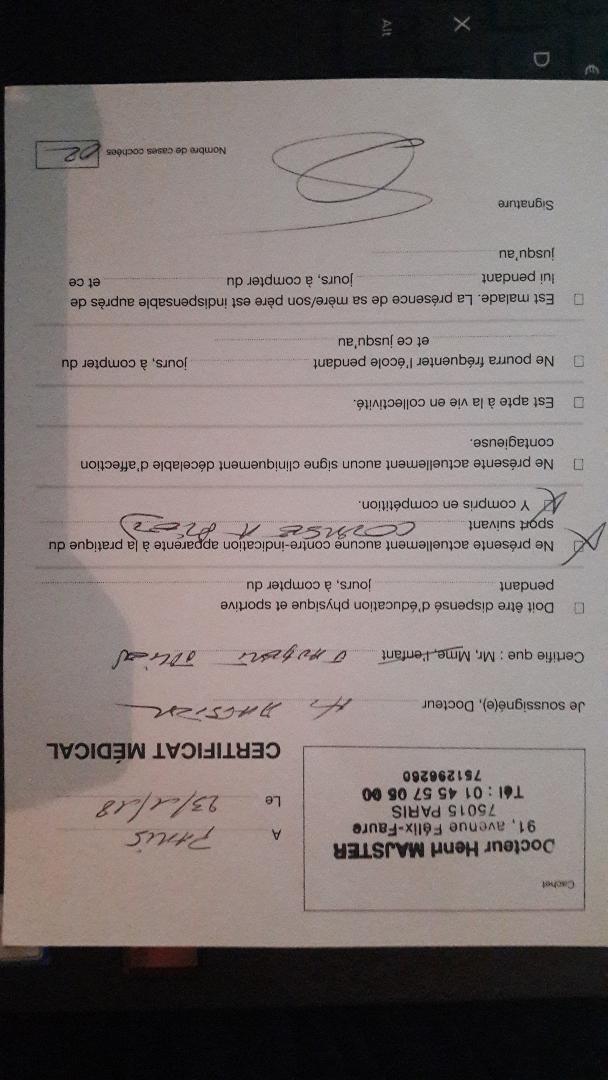 Cachet
Docteur Henri MAJSTER
91, avenue Félix-Faure
75015 PARIS
Tél : 01 45 57 06 00
751296260
A PARIS
Le 23/11/18
CERTIFICAT MÉDICAL
Je soussigné(e), Docteur H. MAJSTER
Certifie que : Mr, Mme, l'enfant
Doit être dispensé d'éducation physique et sportive
pendant jours, à compter du
Ne présente actuellement aucune contre-indication apparente à la pratique du
sport suivant COURSE A PIED
Y compris en compétition.
Ne présente actuellement aucun signe cliniquement décelable d'affection
contagieuse.
Est apte à la vie en collectivité.
Ne pourra fréquenter l'école pendant jours, à compter du
et ce jusqu'au
Est malade. La présence de sa mère/son père est indispensable auprès de
lui pendant jours, à compter du et ce
jusqu'au
Signature
Nombre de cases cochées 02
X
Alt
D
€